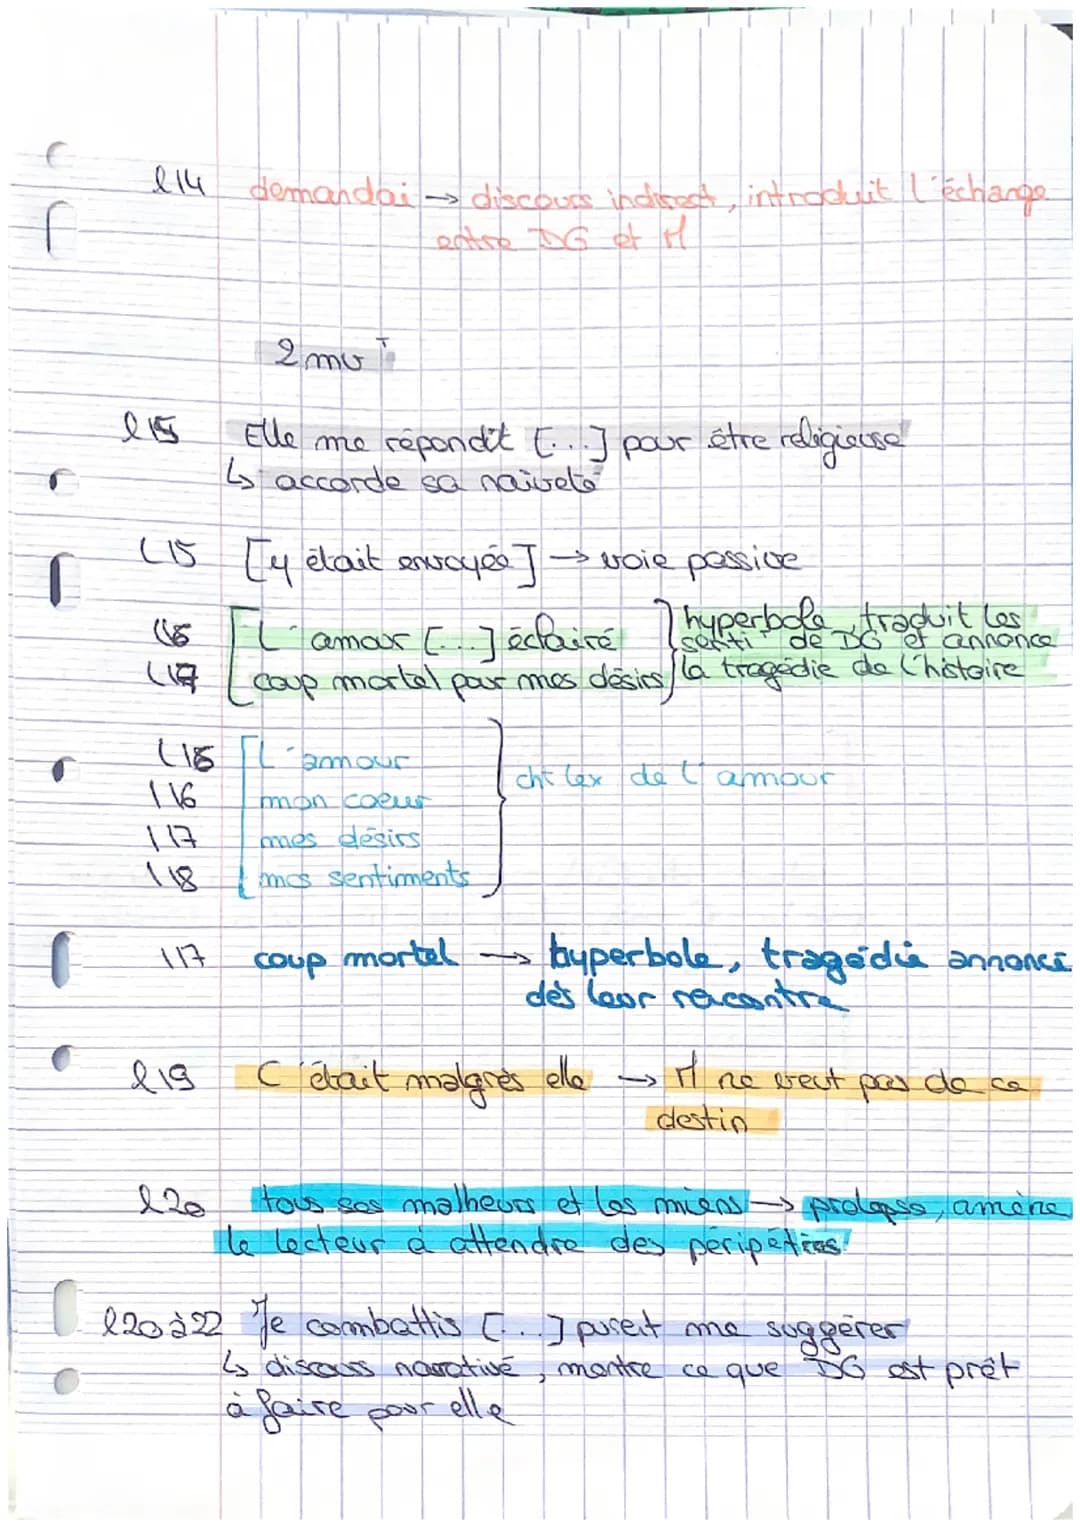 l14 demandai → discours indirect, introduit l'échange
entre DG et M
2 mvᵗ
l15 Elle me répondit [...] pour être religieuse
↳ accorde sa naïveté
l15 [y était envoyée] → voie passive
l16 [L'amour [...] éclairé } hyperbole, traduit les
senti de DG et annonce
l17 coup mortel pour mes désirs la tragédie de l'histoire
l16 [L'amour
l16 mon coeur } cht lex de l'amour
l17 mes désirs
l18 mes sentiments
l17 coup mortel → hyperbole, tragédie annoncé
dès leur rencontre
l19 C'était malgrès elle → M ne veut pas de ce
destin
l20 tous ses malheurs et les miens → prolepse, amène
le lecteur à attendre des péripéties
l20 à 22 Je combattis [...] purent me suggérer
↳ discours narrativé, montre ce que DG est prêt
à faire pour elle